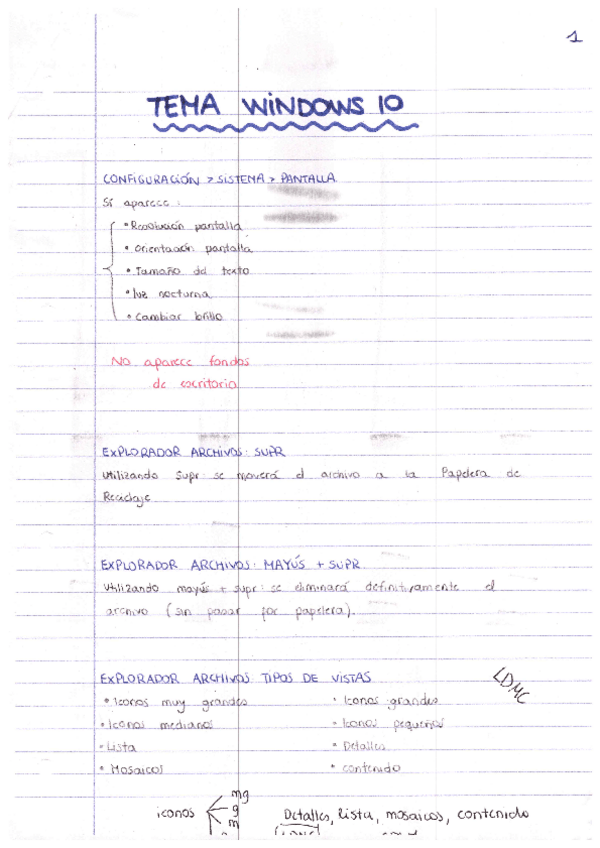 1
TEMA WINDOWS 10
CONFIGURACIÓN > SISTEMA > PANTALLA
Sí aparece:
• Resolución pantalla
• Orientación pantalla
• Tamaño del texto
• luz nocturna
• Cambiar brillo
No aparece fondos
de escritorio
EXPLORADOR ARCHIVOS: SUPR
Utilizando Supr se moverá el archivo a la Papelera de
Reciclaje
EXPLORADOR ARCHIVOS: MAYÚS + SUPR
Utilizando mayús + supr: se eliminará definitivamente el
archivo (sin pasar por papelera).
EXPLORADOR ARCHIVOS TIPOS DE VISTAS
LDMC
• Iconos muy grandes • Iconos grandes
• Iconos medianos • Iconos pequeños
• Lista • Detalles
• Mosaicos • contenido
mg
iconos g Detalles, lista, mosaicos, contenido
m